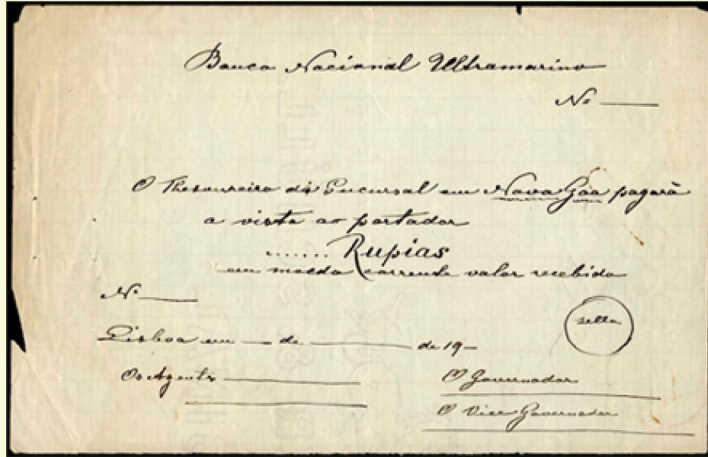 Banco Nacional Ultramarino
No
O Thesoureiro da Sucursal em Nova Gôa pagará
a vista ao portador
...... Rupias
em moeda corrente valor recebido
No
Lisboa em — de — de 19-
sello
Os Agentes
O Governador
O Vice Governador